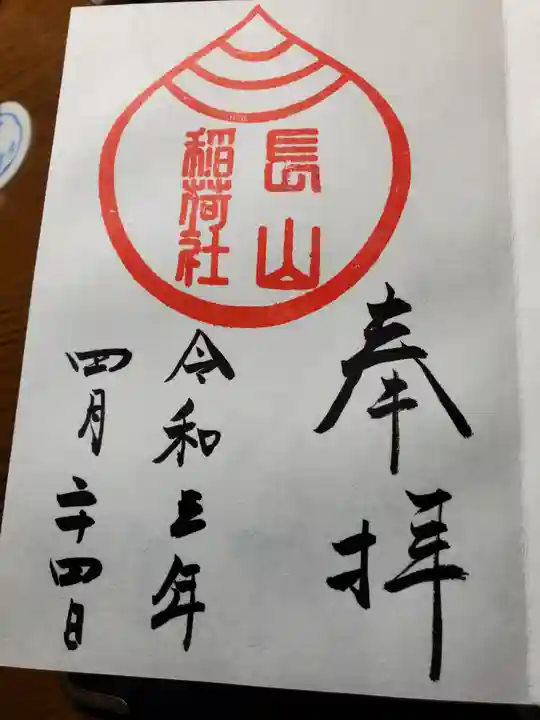 奉拝
長山
稲荷社
令和三年
四月二十四日